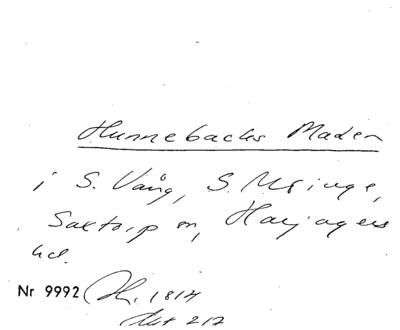 Hunnebacks Maden
i S. Väng, S. Möinge,
Saxtorp sn, Harjagers
hd.
Nr 9992 1814
Akt 217